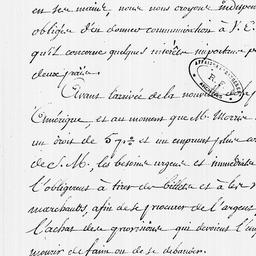 en ses mains, nous nous croyons indispen
obligés d'en donner communication à V. E.
qu'il concerne quelques intérêts importans p
deux païs.
Avant l'arrivée de la nouvelle
Amérique, et au moment que M. Morris
un droit de 5 p.% et un emprunt plus
de S. M., les besoins urgens et immédiats
l'obligèrent à tirer des billets et à les
marchands, afin de se procurer de l'argent
l'achat des provisions qui devoient l'em
mourir de faim ou de se debander.